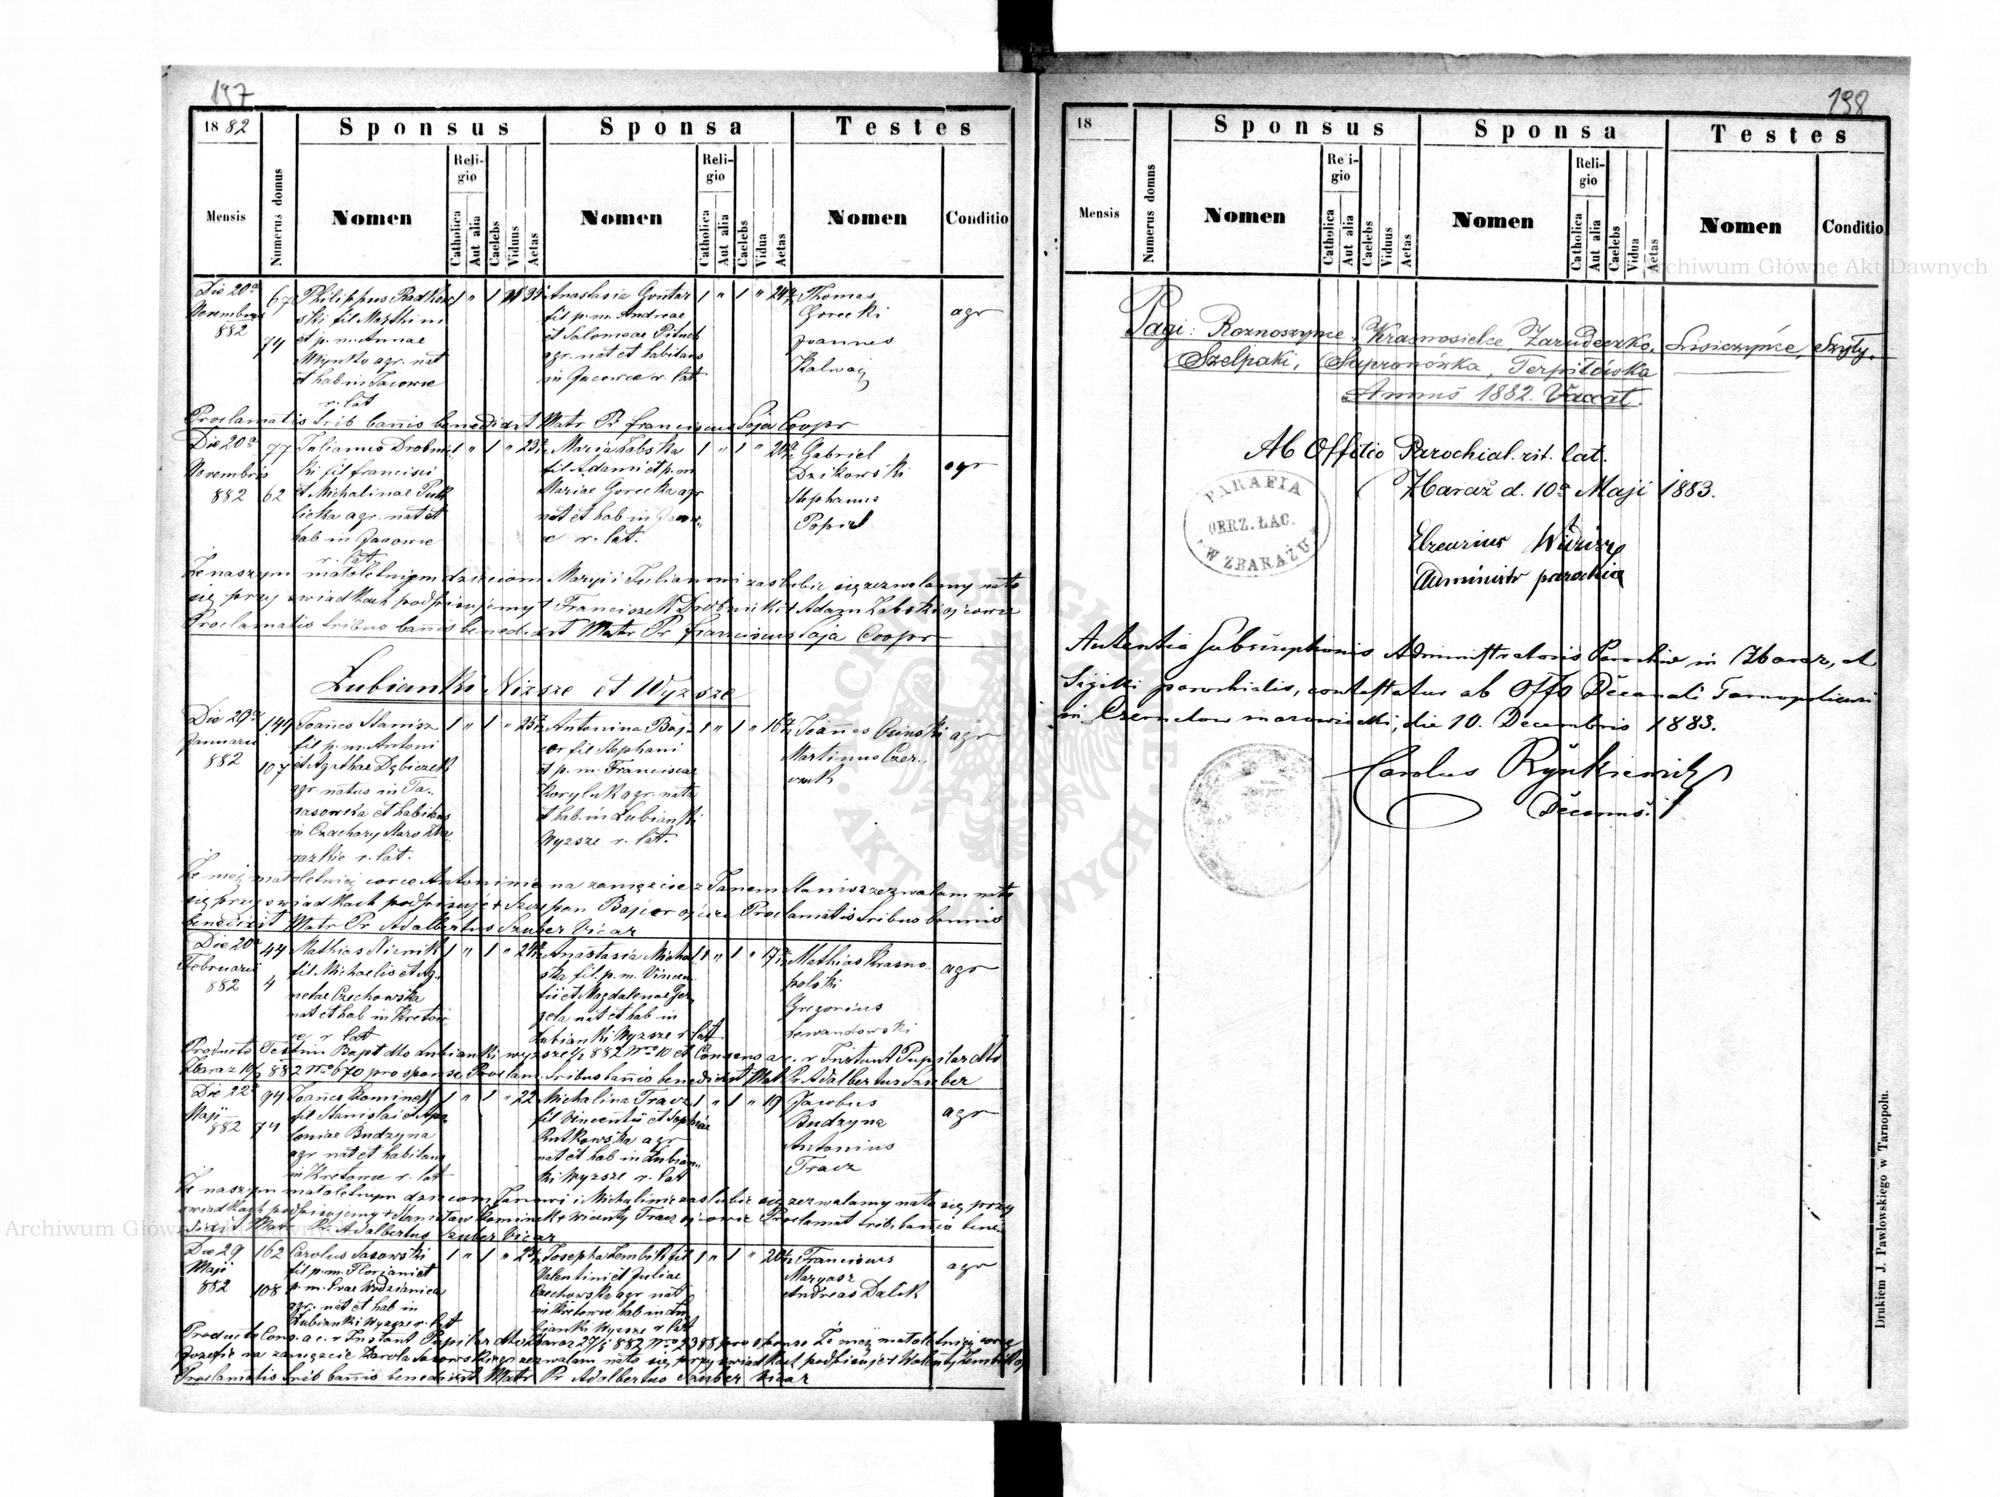 197
1882
Sponsus
Sponsa
Testes
Mensis
Numerus domus
Nomen
Religio
Catholica
Aut alia
Caelebs
Viduus
Aetas
Nomen
Religio
Catholica
Aut alia
Caelebs
Vidua
Aetas
Nomen
Conditio
Die 20a
Novembris
882
67
74
Philippus Radkow
ski fil Marthini
et p. m. Annae
agr. nat
et hab in Jacowce
r. lat
1 " 1
Anastasia Gontar
fil p. m. Andreae
et Salomeae
agr. nat et habitans
in Jacowce r. lat
1 " 1 "
Thomas
Gorecki
Joannes
Kalwaj
agr
Proclamatis trib bannis benedixit Matr Pr Franciscus Soja Coopr
Die 20a
Novembris
882
77
62
Julianus Drobnic
ki fil Francisci
et Michalinae
agr. nat et
hab in Jacowce
r. lat
1 " 1 "
Maria Labska
fil Adami et p. m
Mariae Gorecka agr
nat et hab in Jacow-
ce r. lat.
1 " 1 "
Gabriel
Dzikowski
Stephanus
Popiel
agr
Że naszym małoletniem dzieciom Maryi i Julianowi zaślubić się zezwalamy na to
się przy świadkach podpisujemy + Franciszek Drobnicki + Adam Labski ojcowie
Proclamatis tribus bannis benedixit Matr Pr Franciscus Soja Coopr
Łubianki Niższe et Wyższe
Die 29a
Januarii
882
144
107
Joannes Stanisz
fil p. m. Antoni
et Agathae
agr natus in Ta-
rasowka et habitans
in Czachary
r. lat.
1 " 1 "
Antonina Baj-
cor fil Stephani
et p. m. Franciscae
Koryluk agr. nata
et hab. in Łubianki
Wyzsze r. lat.
1 " 1 "
Joannes
Martinus Czer-
agr
Że mej małoletniej corce Antoninie na zamęście z Janem Stanisz zezwalam na to
się przy świadkach podpisuję + Szczepan Bajcor ojciec Proclamatis tribus bannis
benedixit Matr Pr Adalbertus Szuber Vicar
Die 20a
Februarii
882
44
4
Mathias
fil Michaelis et Ag-
netae Czechowska
nat et hab in Kretow
ce r lat
1 " 1 "
Anastasia Michal
ska fil. p. m. Vincen-
tii et Magdalenae
nat et hab in
Łubianki Wyzsze r lat
1 " 1 "
Mathias Krasno
polski
Gregorius
Lewandowski
agr
Producto Testim Bapt dto Łubianki wyzsze 882 No 10 et Consens a c. r Instant Pupilar dto
Zbaraz 882 No 670 pro sponsa, Proclam. tribus bannis benedixit Mat Pr Adalbertus Szuber
Die 22a
Maji
882
94
74
Joannes Kominek
fil Stanislai et Apo-
loniae Budzyna
agr nat et habitans
in Kretowce r. lat
1 " 1 " 22
Michalina Tracz
fil Vincentii et Sophiae
Rutkowska agr
nat et hab in Łubian-
ki Wyzsze r. lat
1 " 1 " 19
Jacobus
Budzyna
Antonius
Tracz
agr
Że naszym małoletnym dzieciom Janowi i Michalinie zaslubić się zezwalamy na to się przy
świadkach podpisujemy + Stanisław Kominek + Wicenty Tracz ojcowie Proclamat trib. bannis bene-
dixit Matr Pr. Adalbertus Szuber Vicar
Die 29
Maji
882
162
108
Carolus Sasowski
fil p. m. Floriani et
p. m. Evae
agr. nat et hab in
Łubianki Wyzsze r. lat
1 " 1 "
Josepha Zembik fil
Valentini et Juliae
Czechowska agr nat
in Kretowce hab in Łu
bianki Wyzsze r lat
1 " 1 "
Franciscus
Margasz
Andreas Dacik
agr
Producto Cons. a c. r Instant Pupilar dto Zbaraz 882 No 2388 pro sponso Że mej małoletniej corce
Jozefie na zamęście Karola Sasowskiego zezwalam na to się przy świadkach podpisuje + Walenty Zembik oj
Proclamatis trib bannis benedixit Matr Pr Adalbertus Szuber Vicar
198
18
Sponsus
Sponsa
Testes
Mensis
Numerus domus
Nomen
Religio
Catholica
Aut alia
Caelebs
Viduus
Aetas
Nomen
Religio
Catholica
Aut alia
Caelebs
Vidua
Aetas
Nomen
Conditio
Pagi: Roznoszynce, Krasnosielce, Zarudeczko, Lisiczynce, Szyły,
Szelpaki, Supranówka, Terpiłówka
Annus 1882. Vacat.
Ab Offitio Parochial. rit. lat.
Zbaraż d. 10a Maji 1883.
PARAFIA
OBRZ. ŁAC.
W ZBARAŻU
Administr parochiae
Autentia Subscriptionis Administratoris Parochiae in Zbaraz, et
Sigilli parochialis, contestatur ab Offo Decanali Tarnopoliensi
in Czernelow mazowiecki, die 10. Decembris 1883.
Carolus Rynkiewicz
Decanus.
Drukiem J. Pawłowskiego w Tarnopolu.
Archiwum Główne Akt Dawnych
ARCHIWUM GŁÓWNE AKT DAWNYCH